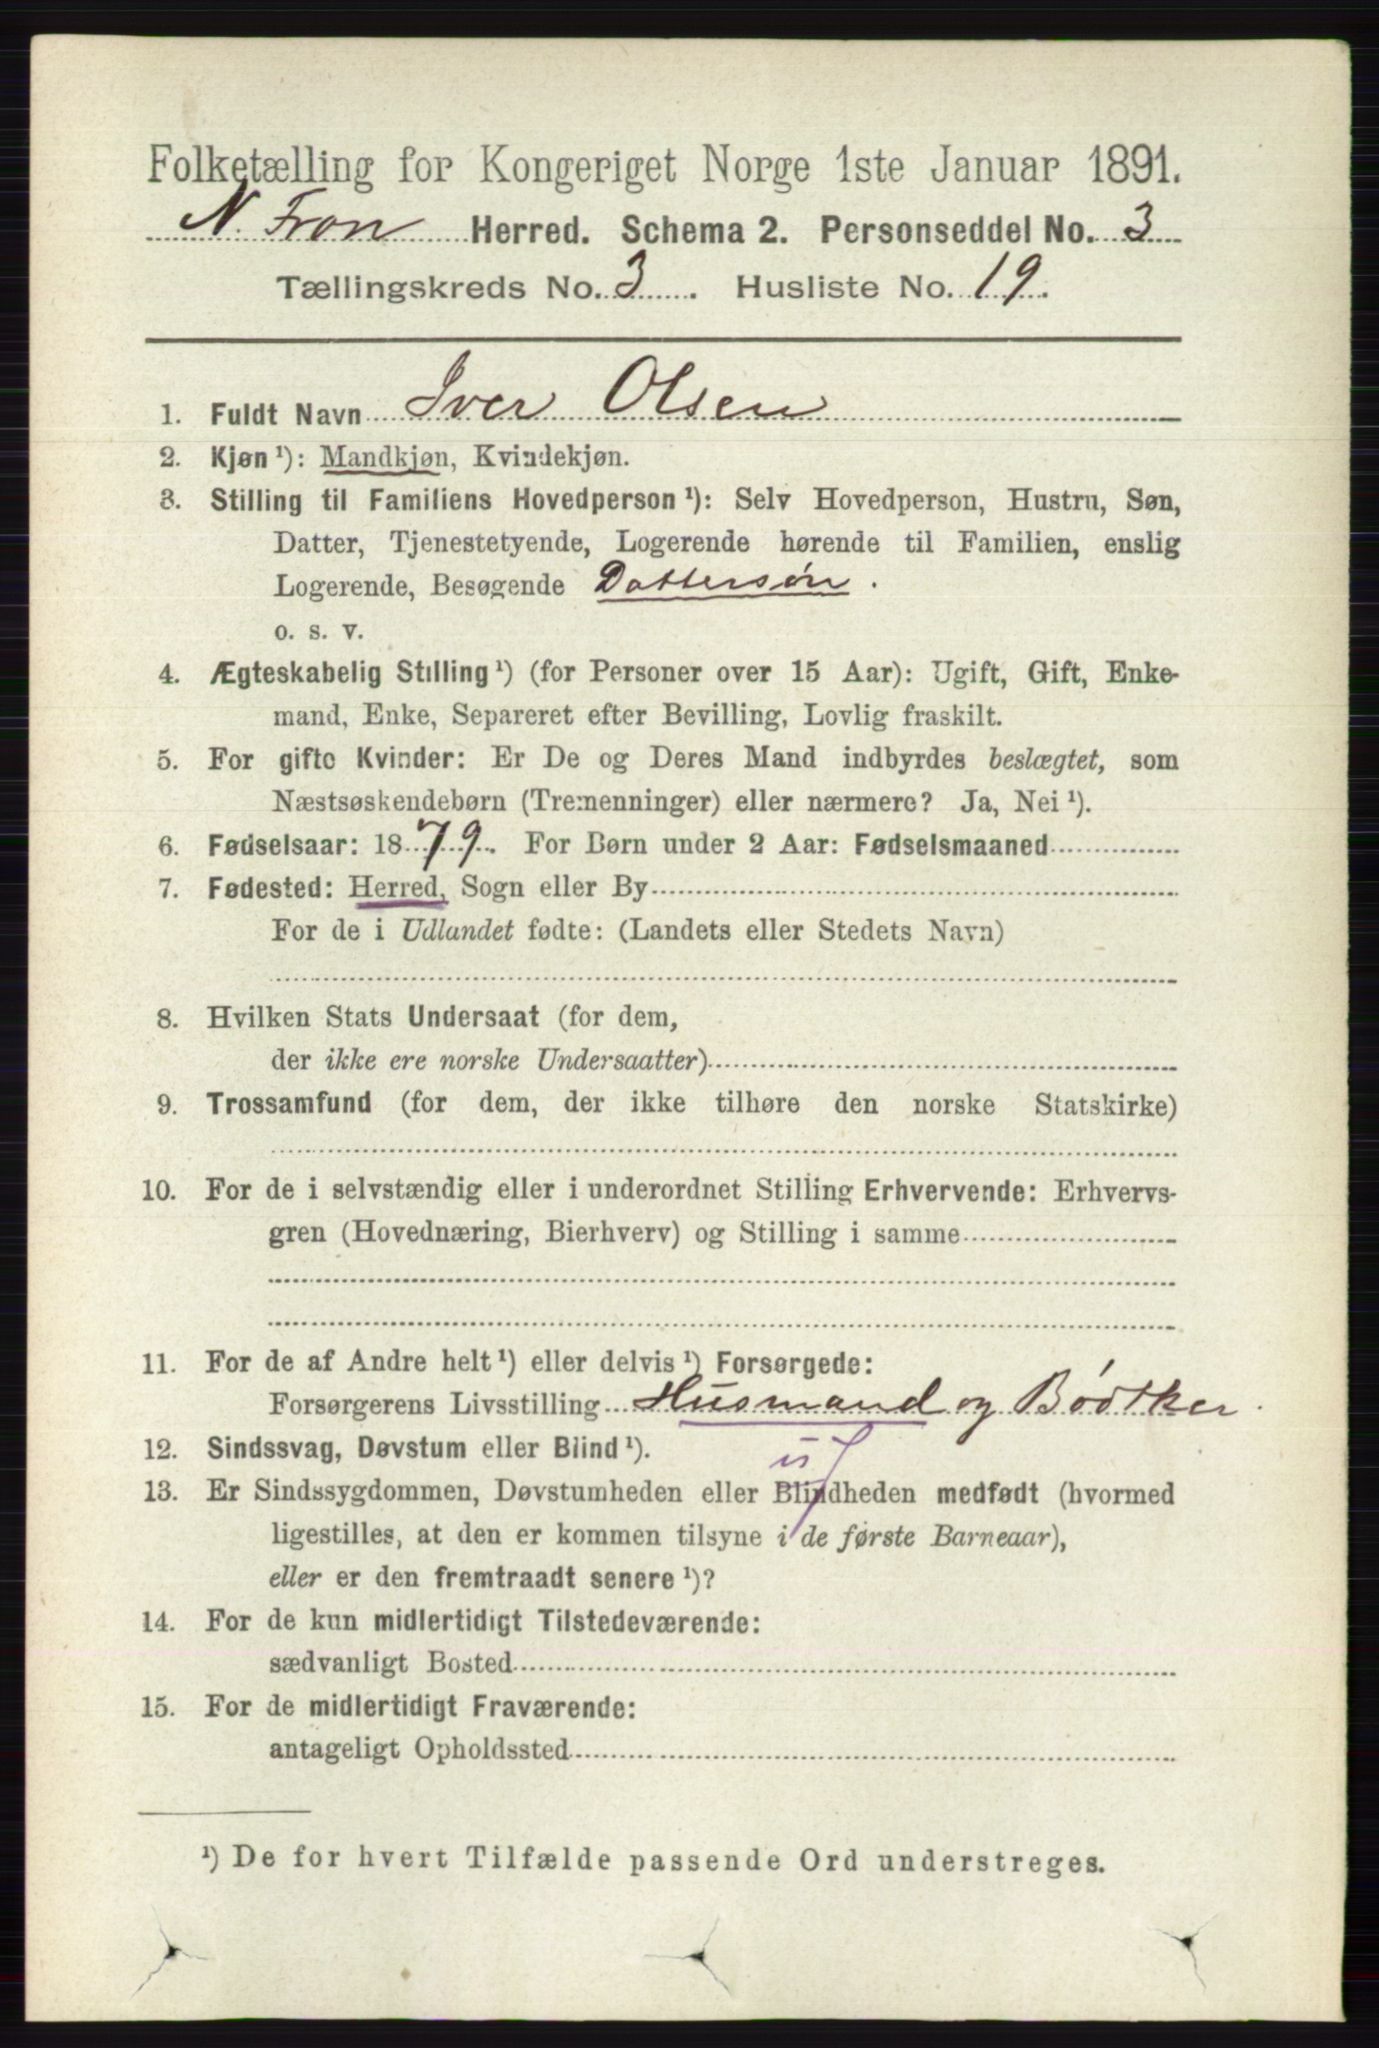 Folketælling for Kongeriget Norge 1ste Januar 1891.
N. Fron Herred. Schema 2. Personseddel No. 3
Tællingskreds No. 3. Husliste No. 19.
1. Fuldt Navn Iver Olsen
2. Kjøn ¹): Mandkjøn, Kvindekjøn.
3. Stilling til Familiens Hovedperson ¹): Selv Hovedperson, Hustru, Søn,
Datter, Tjenestetyende, Logerende hørende til Familien, enslig
Logerende, Besøgende Dattersøn.
o. s. v.
4. Ægteskabelig Stilling ¹) (for Personer over 15 Aar): Ugift, Gift, Enke-
mand, Enke, Separeret efter Bevilling, Lovlig fraskilt.
5. For gifte Kvinder: Er De og Deres Mand indbyrdes beslægtet, som
Næstsøskendebørn (Tremenninger) eller nærmere? Ja, Nei ¹).
6. Fødselsaar: 1879. For Børn under 2 Aar: Fødselsmaaned
7. Fødested: Herred, Sogn eller By
For de i Udlandet fødte: (Landets eller Stedets Navn)
8. Hvilken Stats Undersaat (for dem,
der ikke ere norske Undersaatter)
9. Trossamfund (for dem, der ikke tilhøre den norske Statskirke)
10. For de i selvstændig eller i underordnet Stilling Erhvervende: Erhvervs-
gren (Hovednæring, Bierhverv) og Stilling i samme
11. For de af Andre helt ¹) eller delvis ¹) Forsørgede:
Forsørgerens Livsstilling Husmand og Bödtker.
12. Sindssvag, Døvstum eller Blind ¹).
13. Er Sindssygdommen, Døvstumheden eller Blindheden medfødt (hvormed
ligestilles, at den er kommen tilsyne i de første Barneaar),
eller er den fremtraadt senere ¹)?
14. For de kun midlertidigt Tilstedeværende:
sædvanligt Bosted
15. For de midlertidigt Fraværende:
antageligt Opholdssted
¹) De for hvert Tilfælde passende Ord understreges.